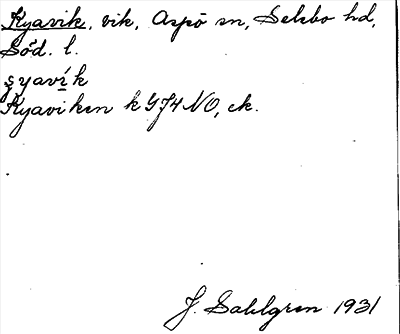 Kyavik, vik, Aspö sn, Selebo hd,
Söd. l.
şyavi̱k
Kyaviken k G74 NO, ek.
J. Sahlgren 1931